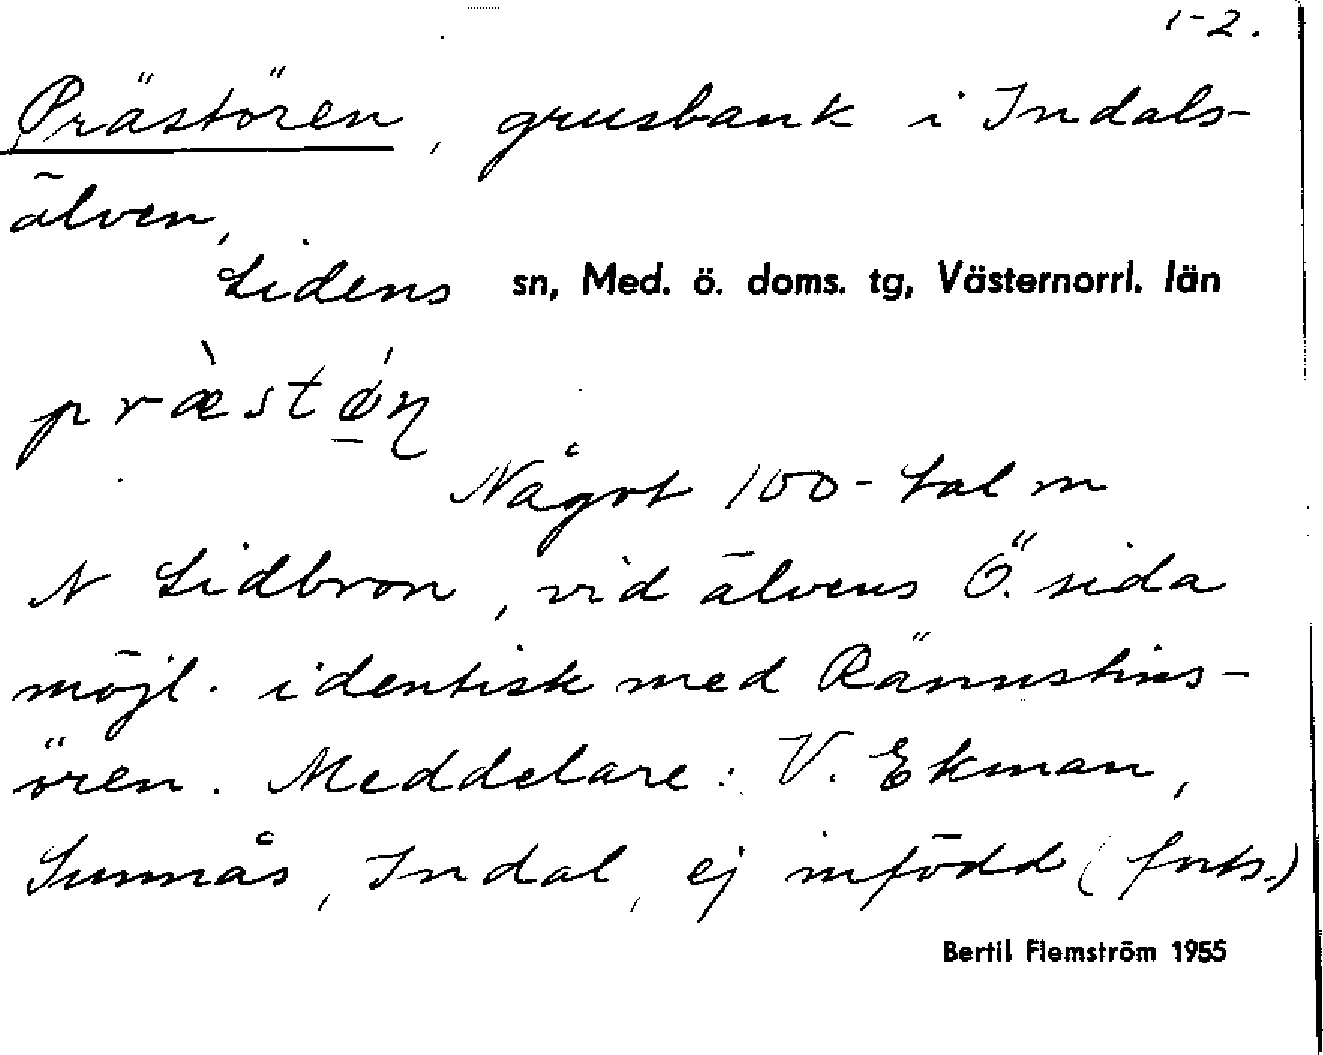 1-2.
Prästören, grusbank i Indals-
älven,
Lidens sn, Med. ö. doms. tg, Västernorrl. län
præ̀stǿ̲ɳ
Något 100-tal m
N Lidbron, vid älvens Ö. sida
möjl. identisk med Rännstins-
ören. Meddelare: V. Ekman,
Sunnås, Indal, ej infödd (forts.)
Bertil Flemström 1955